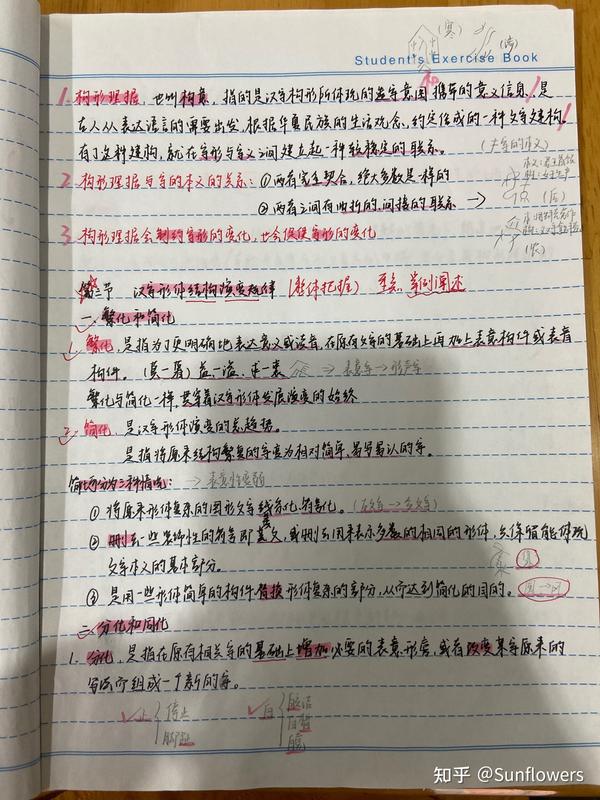 (寒)
(涉)
Student's Exercise Book
1. 构形理据，也叫构意，指的是汉字构形所体现的造字意图携带的意义信息，是
在人从表达语言的需要出发，根据华夏民族的生活观念，约定俗成的一种文字建构。
有了这种建构，就在字形与字义之间建立起一种较稳定的联系。
(文字的本义)
2. 构形理据与字的本义的关系：①两者完全契合，绝大多数是一样的
②两者之间有曲折的、间接的联系 →
(后)
3. 构形理据会制约字形的变化，也会促使字形的变化
第三节 汉字形体结构演变规律 (整体把握) 举例阐述
一、繁化和简化
1. 繁化，是指为了更明确地表达意义或读音，在原有文字的基础上再加上表意构件或表音
构件。(莫—暮) 益—溢、求—裘 → 表意字→形声字
繁化与简化一样，贯穿着汉字形体发展演变的始终
2. 简化，是汉字形体演变的总趋势。
是指将原来结构繁复的字变为相对简单，易写易认的字。
简化可分为三种情况：→ 表意性变弱
① 将原来形体复杂的图形文字线条化、符号化。(古文字→今文字)
② 删去一些装饰性的符号即羡文，或删去用来表示多数的相同的形体，只保留能体现
文字本义的基本部分。
③ 是用一些形体简单的构件替换形体复杂的部分，从而达到简化的目的。
二、分化和同化
1. 分化，是指在原有相关字的基础上增加必要的表意形旁，或者改变某字原来的
写法而组成一个新的字。
止 停止
脚趾
知乎 @Sunflowers